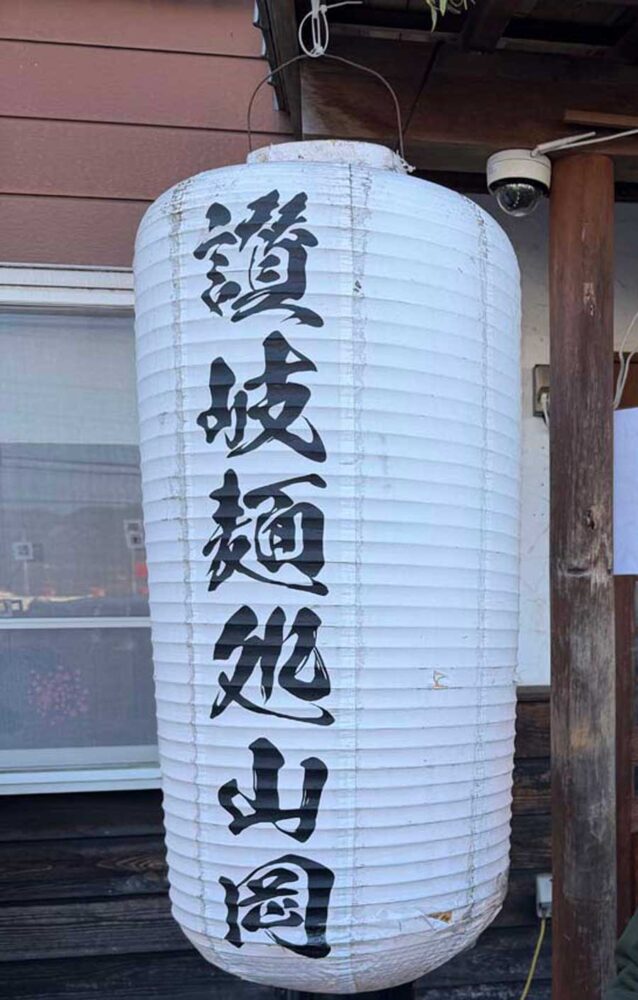 讃岐麺処山岡